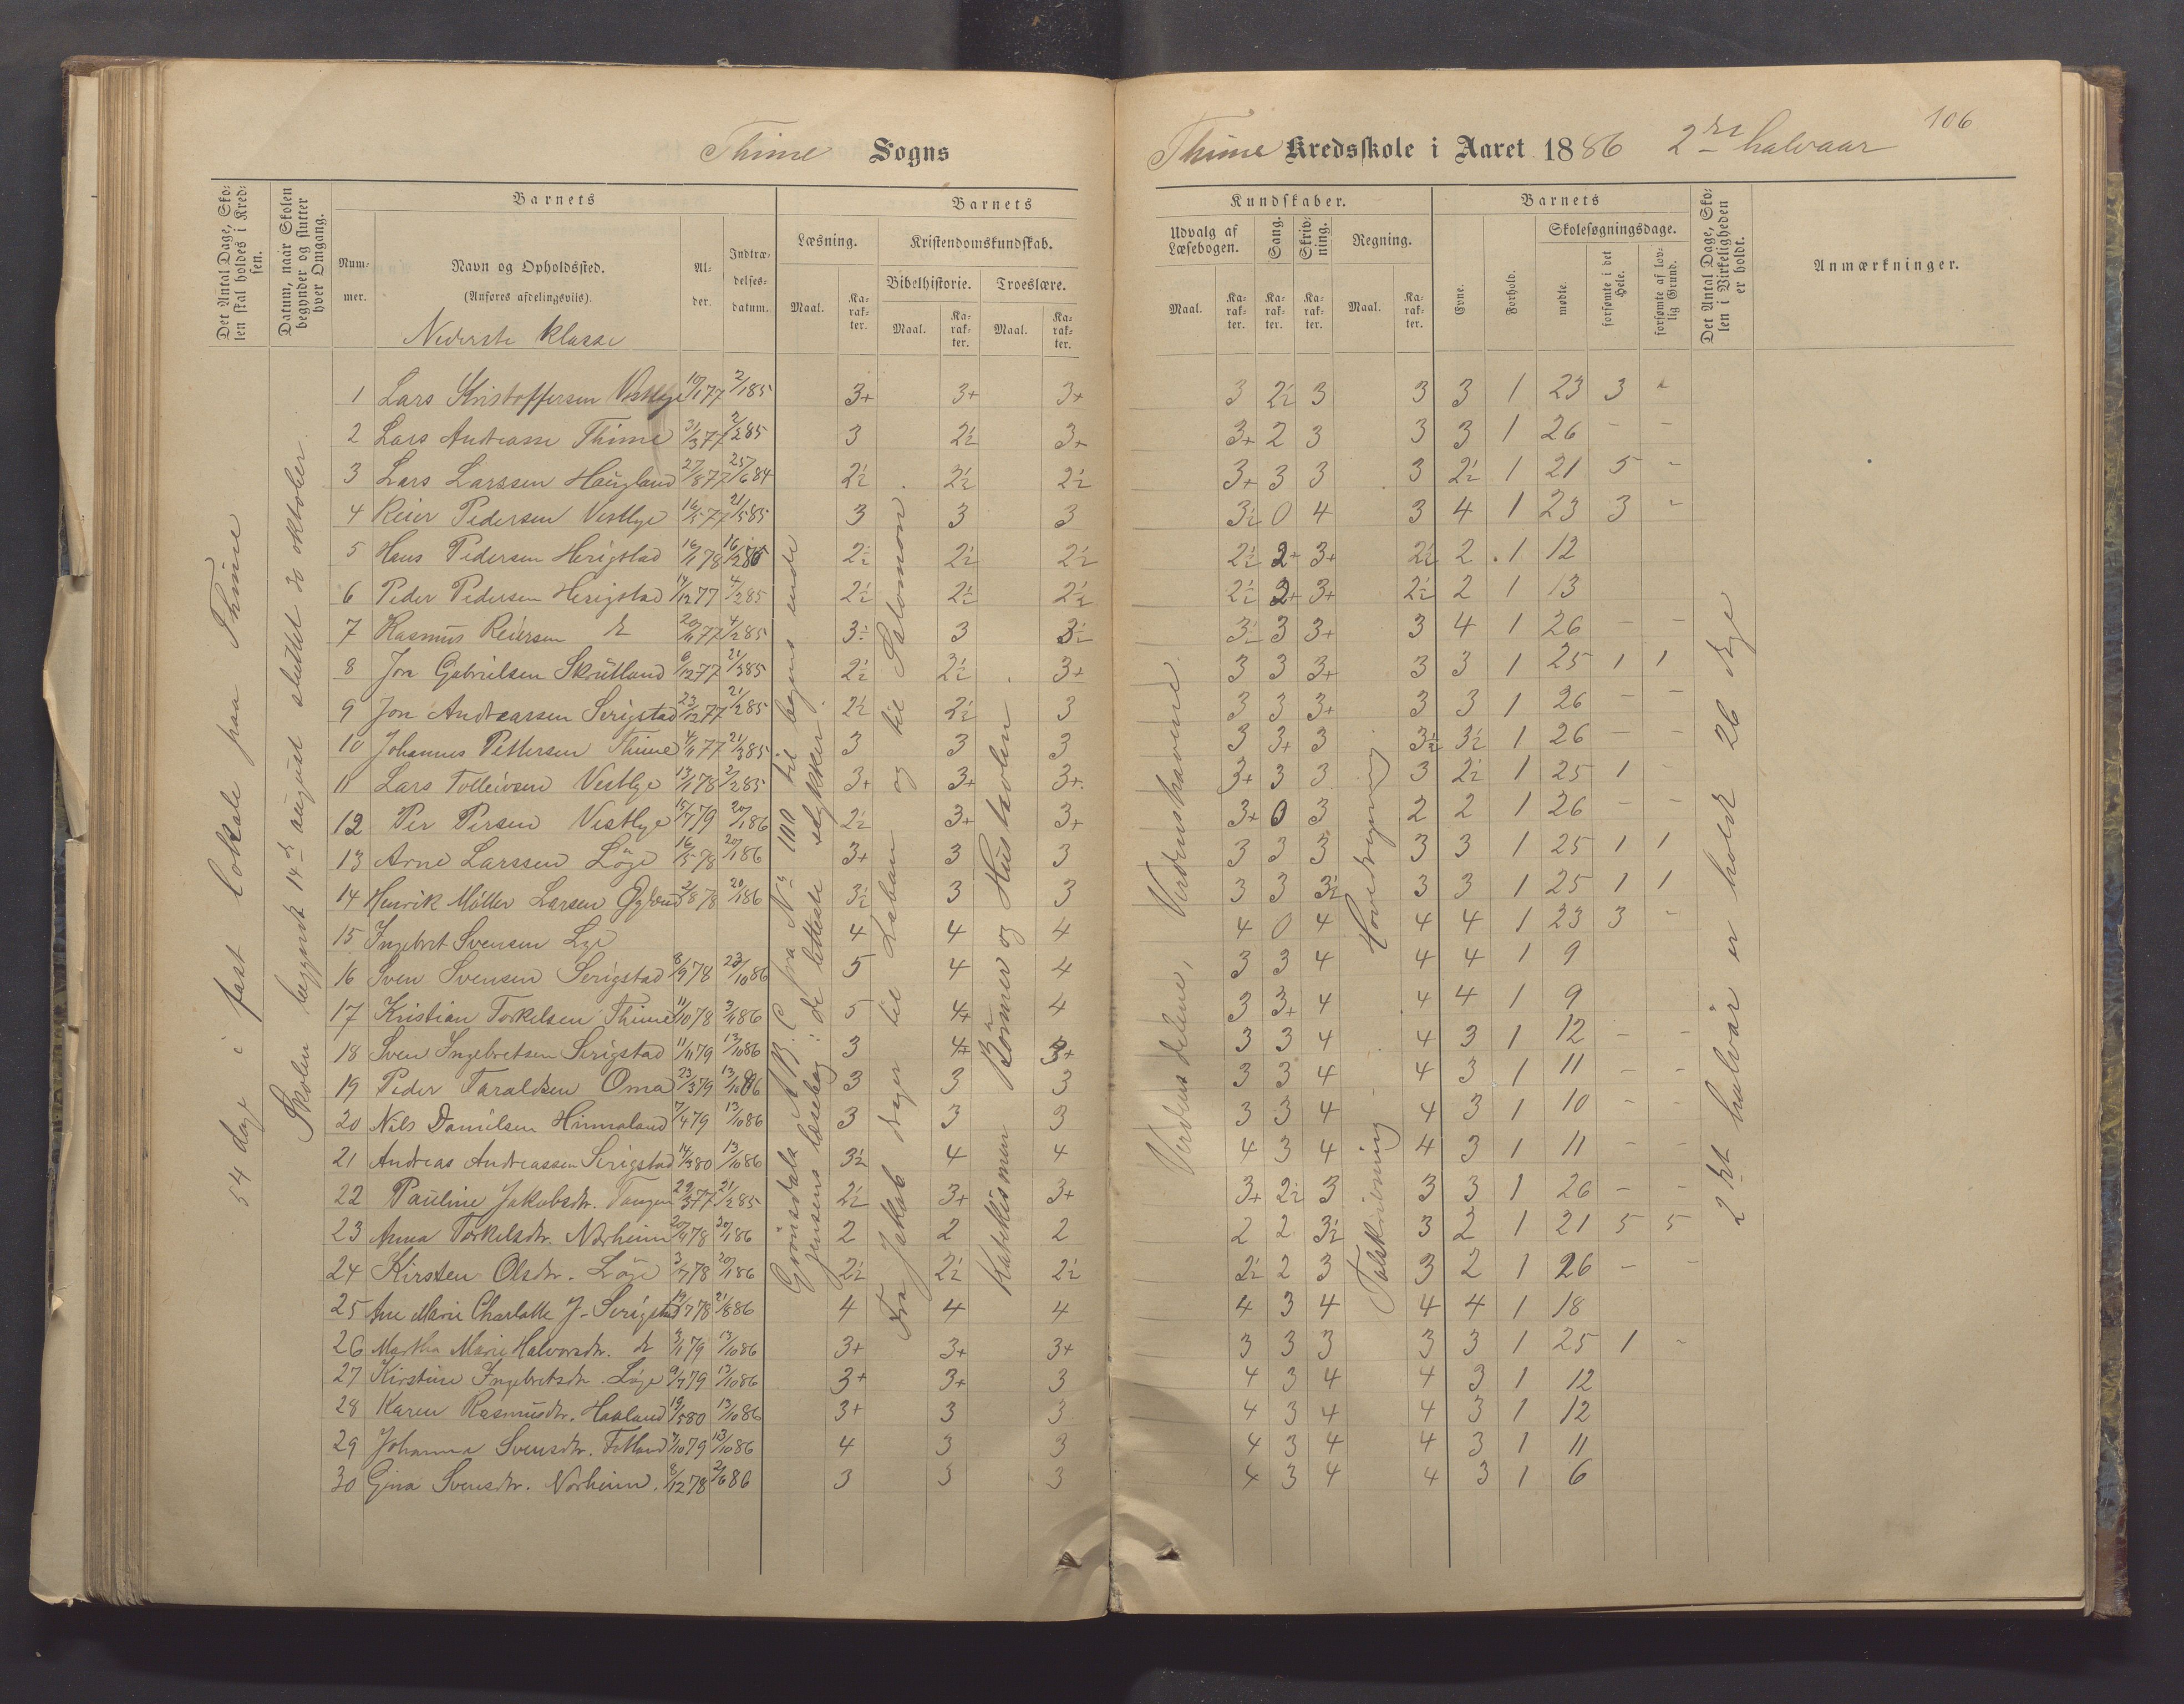 106
Thime Sogns
Thime Kredsskole i Aaret 1886 2det halvaar
Det Antal Dage, Skolen skal holdes i Kredsen.
Datum, naar Skolen begynder og slutter hver Omgang.
Barnets
Nummer.
Navn og Opholdssted.
(Anføres afdelingsviis).
Alder.
Indtrædelsesdatum.
Barnets
Læsning.
Kristendomskundskab.
Bibelhistorie.
Troeslære.
Maal.
Karakter.
Maal.
Karakter.
Maal.
Karakter.
Kundskaber.
Udvalg af Læsebogen.
Sang.
Skrivning.
Regning.
Maal.
Karakter.
Karakter.
Karakter.
Maal.
Karakter.
Barnets
Evne.
Forhold.
Skolesøgningsdage.
mødte.
forsømte i det Hele.
forsømte af lovlig Grund.
Det Antal Dage, Skolen i Virkeligheden er holdt.
Anmærkninger.
Nederste klasse
54 dage i fast lokale paa Thime
Skolen begyndt 14de august sluttet 30 oktober.
Grönsdals A B C fra No 100 til bogens ende
Jensens læsebog: de letteste stykker.
Fra Jakob drager til Laban og til Salomon
Katekismen Bönner og Hustavlen
Verdens delene, Verdenshavene.
Talskrivning Hovedregning.
2det halvår er holdt 26 dage
1 Lars Kristoffersen Vestlye 10/1 77 2/1 85 3+ 3+ 3+ 3 2½ 3 3 3 1 23 3 -
2 Lars Andreasse Thime 31/3 77 2/2 85 3 2½ 3+ 3+ 2 3 3 3 1 26 - -
3 Lars Larssen Haugland 27/8 77 25/6 84 2½ 2½ 2½ 3+ 3 3 3 2½ 1 21 5 -
4 Reier Pedersen Vestlye 16/5 77 21/5 85 3 3 3 3½ 0 4 3 4 1 23 3 -
5 Hans Pedersen Herigstad 16/1 78 16/2 86 2½ 2½ 2½ 2½ 2+ 3+ 2½ 2 1 12
6 Peder Pedersen Herigstad 14/12 77 4/2 85 2½ 2½ 2½ 2½ 2+ 3+ 2½ 2 1 13
7 Rasmus Reiersen 20/11 77 4/2 85 3½ 3 3½ 3½ 3 3+ 3 4 1 26 - -
8 Jon Gabrielsen Skrutland 6/12 77 21/3 85 2½ 2½ 3+ 3 3 3+ 3 3 1 25 1 1
9 Jon Andreassen Serigstad 23/12 77 21/2 85 2½ 2½ 3 3 3 3+ 3 3 1 26 - -
10 Johannes Pettersen Thime 4/11 77 21/3 85 3 3 3 3 3+ 3 3½ 3½ 1 26 - -
11 Lars Tolleivsen Vestlye 13/1 78 2/2 85 3+ 3+ 3+ 3+ 3 3 3 2½ 1 25 1 -
12 Per Persen Vestlye 15/7 79 20/1 86 2½ 3+ 3+ 3+ 0 3 2 2 1 26 - -
13 Arne Larssen Löge 16/5 78 20/1 86 3+ 3 3 3 3 3 3 3 1 25 1 1
14 Henrik Möller Larsen 2/8 78 20/1 86 3½ 3 3 3 3 3½ 3 3 1 25 1 1
15 Ingebret Svensen Lye 4 4 4 4 0 4 4 4 1 23 3 -
16 Sven Svensen Serigstad 8/9 78 23/10 86 5 4 4 3 3 4 4 4 1 9
17 Kristian Torkelsen Thime 11/10 78 3/11 86 5 4+ 4 3 3+ 4 4 4 1 9
18 Sven Ingebretsen Serigstad 11/11 79 13/10 86 3 4+ 3+ 3 3 4 4 3 1 12 - -
19 Peder Taraldsen Oma 23/3 79 13/10 86 3 3 3 3 3 4 4 3 1 11 - -
20 Nils Danielsen Himnaland 7/4 79 13/10 86 3 3 3 3 3 4 4 3 1 10 - -
21 Andreas Andreassen Serigstad 14/3 80 13/10 86 3½ 4 4 4 3 4 4 3 1 11 - -
22 Pauline Jakobsdtr. Tangen 29/3 77 21/2 85 2½ 3+ 3+ 3+ 2½ 3 3 3 1 26 - -
23 Anna Torkelsdtr. Norheim 20/9 78 30/1 86 2 2 2 2 2 3½ 3 2 1 21 5 5
24 Kirsten Olsdtr. Löge 3/7 78 20/1 86 2½ 2½ 2½ 2½ 2 3 3 2 1 26 - -
25 Ane Marie Charlotte J. Serigstad 19/7 78 21/8 86 4 4 4 4 3 4 4 4 1 18
26 Martha Marie Halvorsdtr. 3/1 79 13/10 86 3+ 3+ 3+ 3 3 3 3 3 1 25 1 -
27 Kirstine Ingebretsdtr. Löge 9/7 79 13/10 86 3+ 3+ 3 4 3 4 4 3 1 12
28 Karen Rasmusdtr. Haaland 19/5 80 13/10 86 3+ 3 3 4 3 4 4 3 1 12
29 Johanna Svensdtr. Fotland 7/10 79 13/10 86 4 3 3 4 3 4 4 3 1 11
30 Gina Svensdtr. Norheim. 8/12 78 2/6 86 3 3 3 4 3 4 4 3 1 6